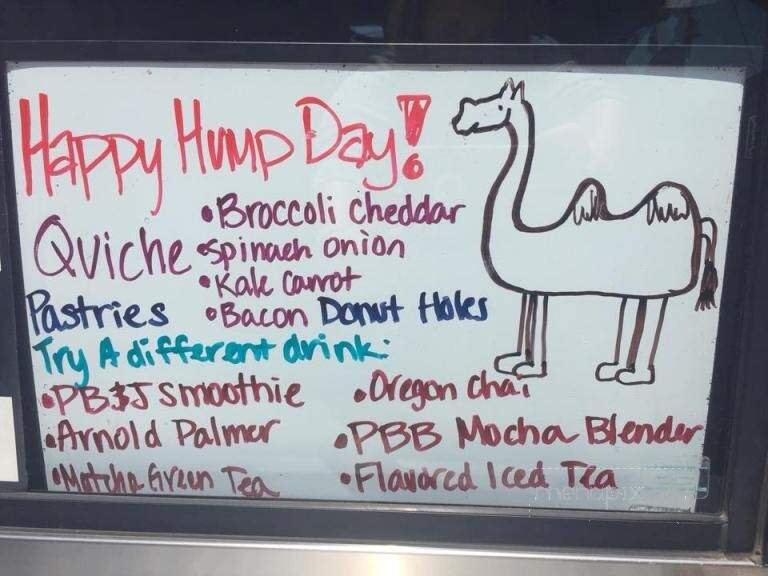 Happy Hump Day!
Quiche
• Broccoli cheddar
• spinach onion
• Kale Carrot
• Bacon
Pastries Donut Holes
Try A different drink:
• PB&J smoothie
• Oregon Chai
• Arnold Palmer
• PBB Mocha Blender
• Matcha Green Tea
• Flavored Iced Tea
menupix